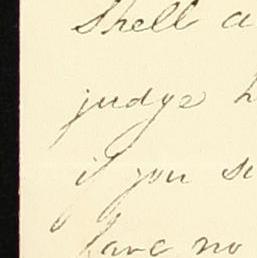 Shell a
judge h
if you su
have no